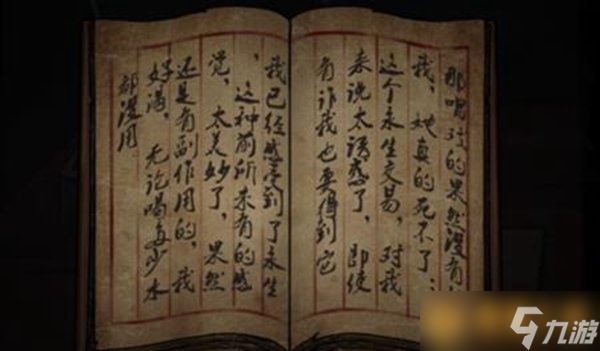 那的果然没有
我，她真的死不了；
这个永生交易，对我
来说太诱惑了，即使
有诈我也要得到它
我已经感受到了永生
，这种前所未有的感
觉，太美妙了，果然
还是有副作用的，我
好渴，无论喝多少水
都没用。
九游